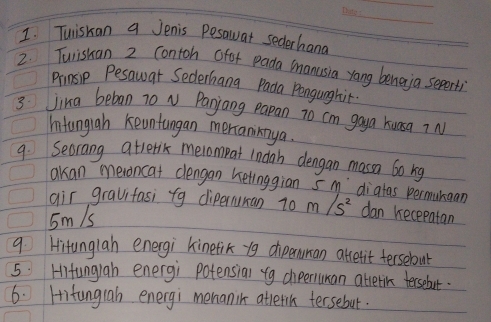 1. Tuliskan 4 Jenis Pesawat Sederhana
2. Tuliskan 2 Contoh Otot pada manusia yang bekerja seperti
Prinsip Pesawat Sederhana Pada Pengungkit.
3. Jika beban 70 N Panjang papan 70 cm gaya kuasa 7 N
hitunglah keuntungan mekaniknya.
4. Seorang atletik melompat indah dengan massa 60 kg
akan meloncat dengan ketinggian 5 m diatas permukaan
air gravitasi yg diperlukan 10 m/s² dan kecepatan
5m/s
4. Hitunglah energi kinetik yg diperlukan atletit tersebut
5. Hitunglah energi potensial yg diperlukan atletik tersebut.
6. Hitunglah energi mekanik atletik tersebut.